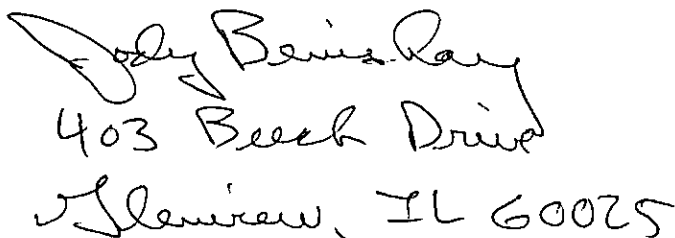 Jody
403 Beech Drive
Glenview, IL 60025